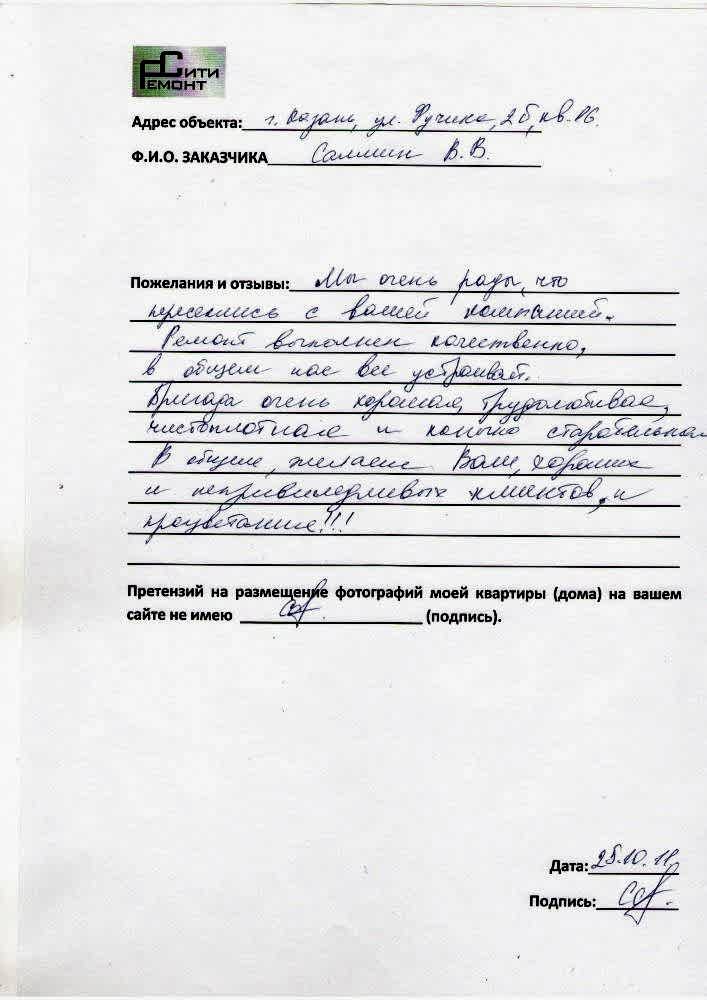 Сити
Ремонт
Адрес объекта: г. Казань, ул. Фучика, 2б, кв. 86.
Ф.И.О. ЗАКАЗЧИКА Саллин В.В.
Пожелания и отзывы: Мы очень рады, что
пересеклись с вашей компанией.
Ремонт выполнен качественно,
в общем нас все устраивает.
Бригада очень хорошая, трудолюбивая,
чистоплотная и конечно старательная
В общем, желаем Вам, хороших
и непривиледливых клиентов, и
процветание!!!
Претензий на размещение фотографий моей квартиры (дома) на вашем
сайте не имею (подпись).
Дата: 25.10.11
Подпись: